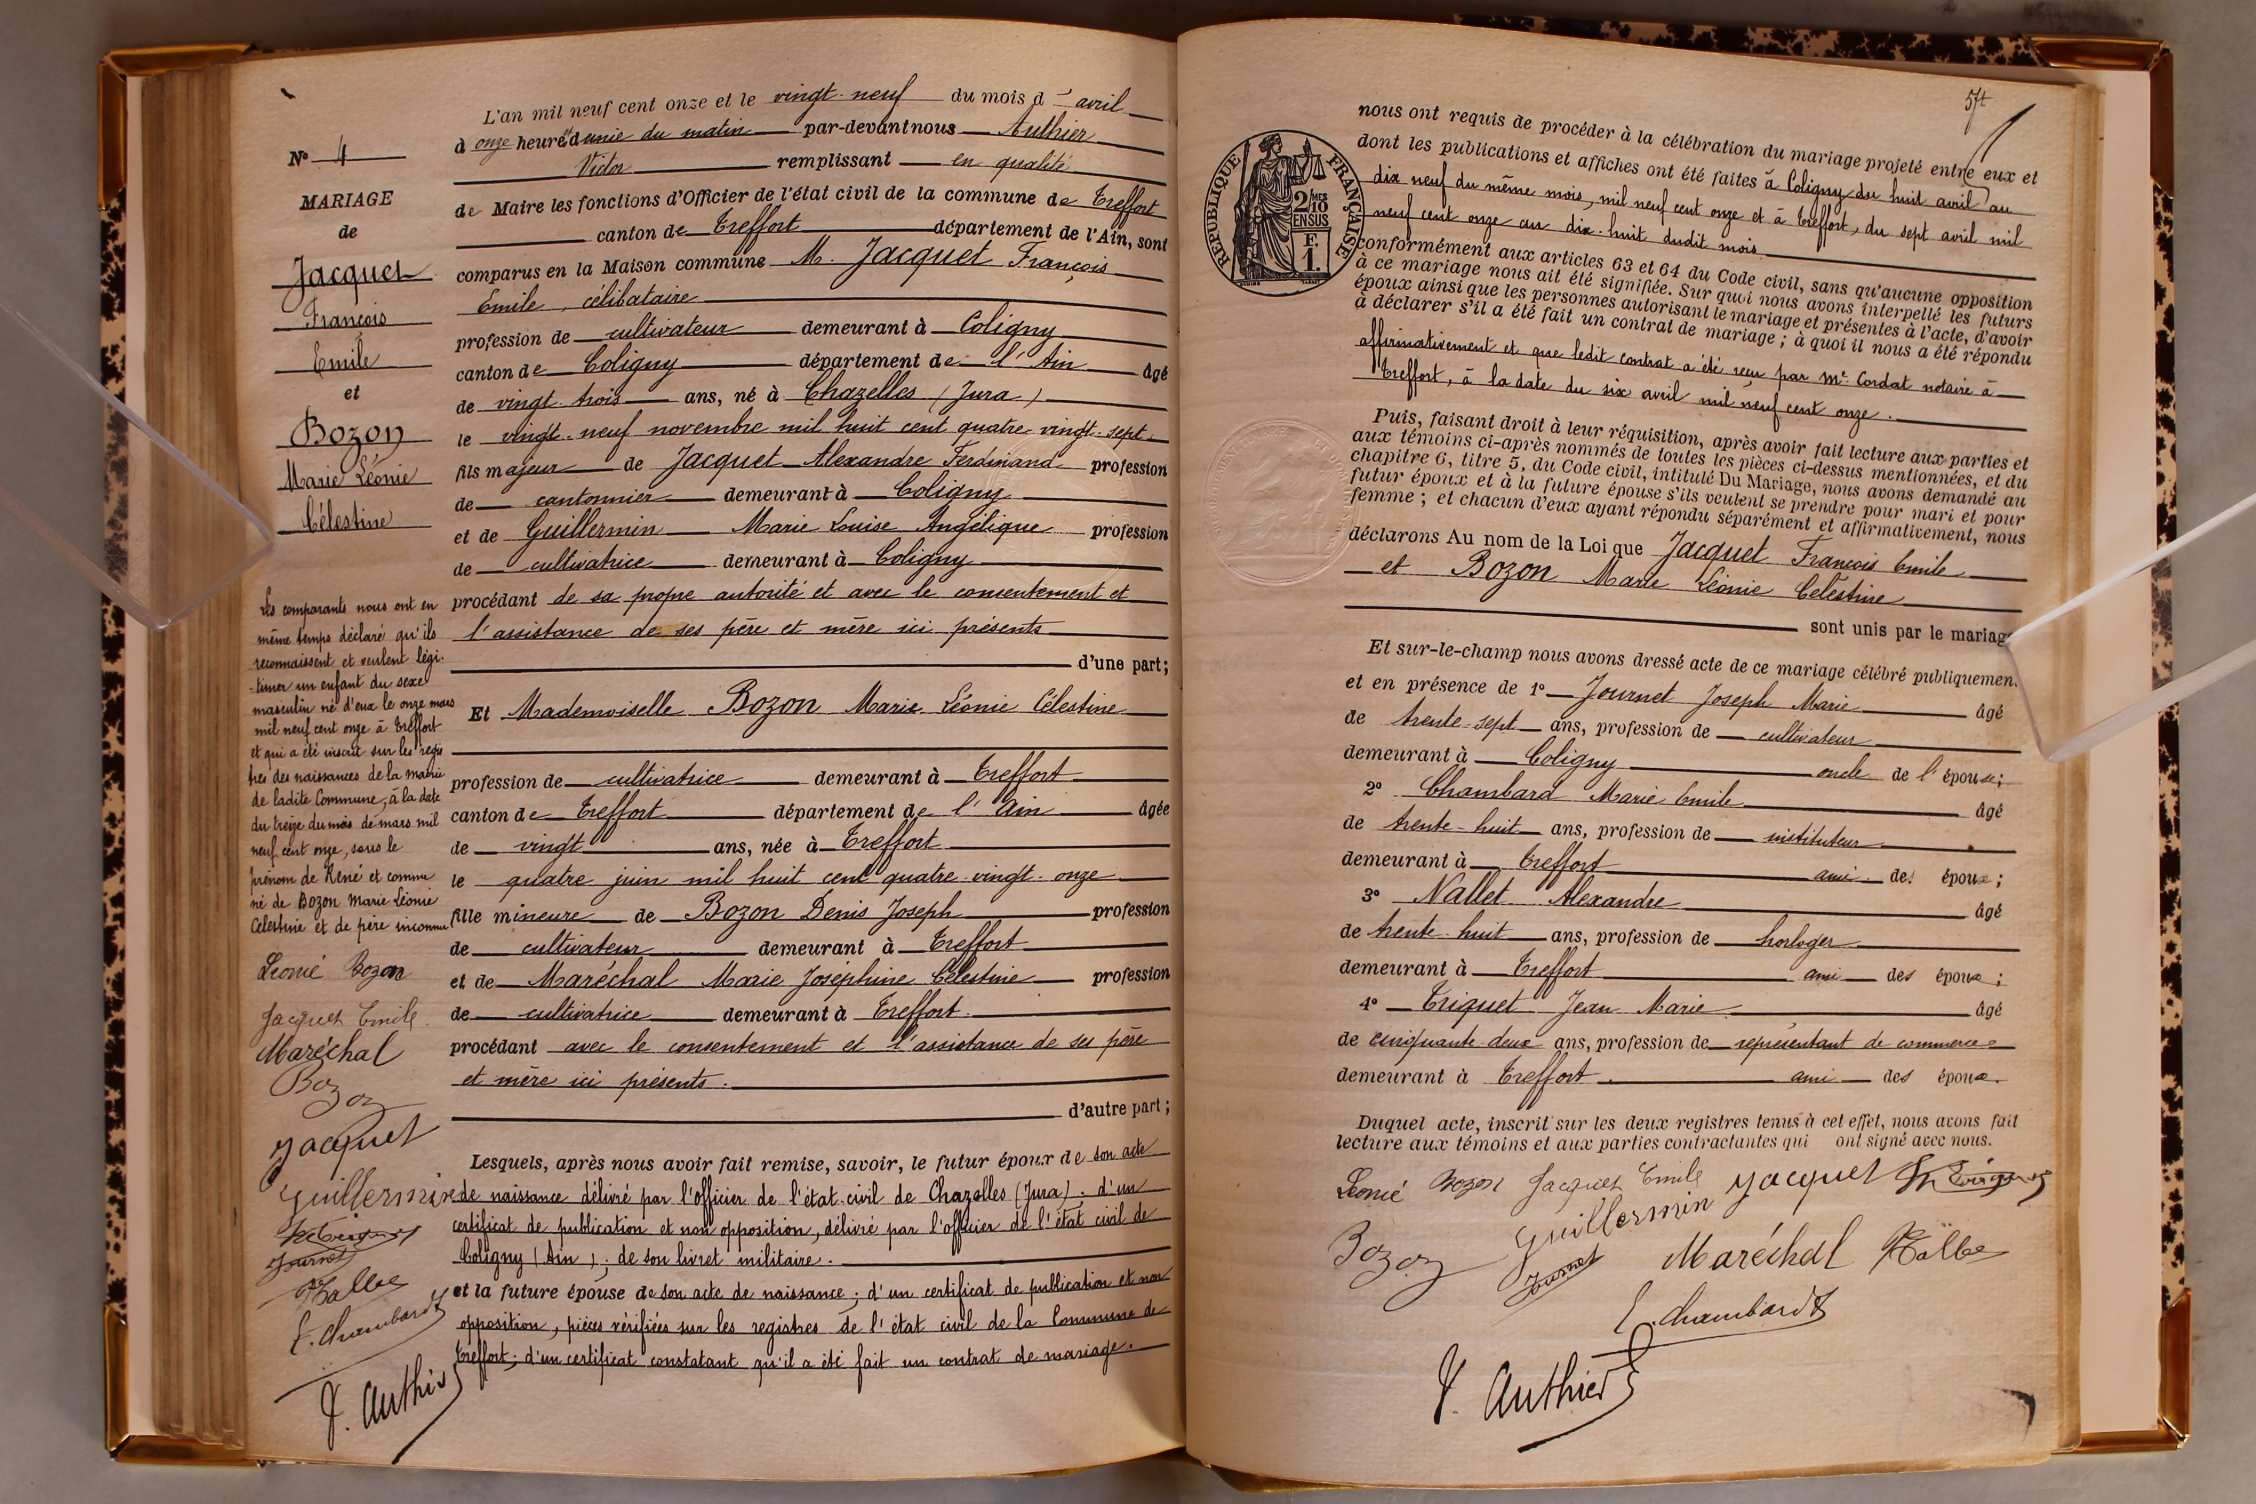 N° 4
MARIAGE
de
Jacquet
François
Emile
et
Bozon
Marie Léonie
Célestine
Les comparants nous ont en
même temps déclaré qu'ils
reconnaissent et veulent légi-
-timer un enfant du sexe
masculin né d'eux le onze mars
mil neuf cent onze à Treffort
et qui a été inscrit sur les regis
tres des naissances de la mairie
de ladite Commune, à la date
du treize du mois de mars mil
neuf cent onze, sous le
prénom de René et comme
né de Bozon Marie Léonie
Célestine et de père inconnu
Léonie Bozon
Jacquet Emile
Maréchal
Bozon
Jacquet
Guillermin
Journet
Nallet
E. Chambard
V. Authier
L'an mil neuf cent onze et le vingt-neuf du mois d' avril
à onze heures et demie du matin par-devant nous Authier
Victor remplissant en qualité
de Maire les fonctions d'Officier de l'état civil de la commune de Treffort
canton de Treffort département de l'Ain, sont
comparus en la Maison commune M. Jacquet François
Emile, célibataire
profession de cultivateur demeurant à Coligny
canton de Coligny département de l'Ain âgé
de vingt-trois ans, né à Chazelles (Jura)
le vingt-neuf novembre mil huit cent quatre-vingt-sept
fils majeur de Jacquet Alexandre Ferdinand profession
de cantonnier demeurant à Coligny
et de Guillermin Marie Louise Angélique profession
de cultivatrice demeurant à Coligny
procédant de sa propre autorité et avec le consentement et
l'assistance de ses père et mère ici présents
d'une part;
Et Mademoiselle Bozon Marie Léonie Célestine
profession de cultivatrice demeurant à Treffort
canton de Treffort département de l'Ain âgée
de vingt ans, née à Treffort
le quatre juin mil huit cent quatre-vingt-onze
fille mineure de Bozon Denis Joseph profession
de cultivateur demeurant à Treffort
et de Maréchal Marie Joséphine Célestine profession
de cultivatrice demeurant à Treffort.
procédant avec le consentement et l'assistance de ses père
et mère ici présents.
d'autre part;
Lesquels, après nous avoir fait remise, savoir, le futur époux de son acte
de naissance délivré par l'officier de l'état-civil de Chazelles (Jura); d'un
certificat de publication et non opposition, délivré par l'officier de l'état civil de
Coligny (Ain); de son livret militaire.
et la future épouse de son acte de naissance; d'un certificat de publication et non
opposition, pièces vérifiées sur les registres de l'état civil de la Commune de
Treffort; d'un certificat constatant qu'il a été fait un contrat de mariage.
57
RÉPUBLIQUE FRANÇAISE
2/10
MES
EN SUS
F.
1.
nous ont requis de procéder à la célébration du mariage projeté entre eux et
dont les publications et affiches ont été faites à Coligny du huit avril au
dix neuf du même mois, mil neuf cent onze et à Treffort, du sept avril mil
neuf cent onze au dix-huit dudit mois
conformément aux articles 63 et 64 du Code civil, sans qu'aucune opposition
à ce mariage nous ait été signifiée. Sur quoi nous avons interpellé les futurs
époux ainsi que les personnes autorisant le mariage et présentes à l'acte, d'avoir
à déclarer s'il a été fait un contrat de mariage; à quoi il nous a été répondu
affirmativement et que ledit contrat a été reçu par Me. Cordat notaire à
Treffort, à la date du six avril mil neuf cent onze.
Puis, faisant droit à leur réquisition, après avoir fait lecture aux parties et
aux témoins ci-après nommés de toutes les pièces ci-dessus mentionnées, et du
chapitre 6, titre 5, du Code civil, intitulé Du Mariage, nous avons demandé au
futur époux et à la future épouse s'ils veulent se prendre pour mari et pour
femme; et chacun d'eux ayant répondu séparément et affirmativement, nous
déclarons Au nom de la Loi que Jacquet François Emile
et Bozon Marie Léonie Célestine
sont unis par le mariag
Et sur-le-champ nous avons dressé acte de ce mariage célébré publiquemen
et en présence de 1° Journet Joseph Marie âgé
de trente-sept ans, profession de cultivateur
demeurant à Coligny oncle de l'épouse;
2° Chambard Marie Emile âgé
de trente-huit ans, profession de instituteur
demeurant à Treffort ami des époux;
3° Nallet Alexandre âgé
de trente-huit ans, profession de horloger
demeurant à Treffort ami des époux;
4° Triquet Jean Marie âgé
de cinquante-deux ans, profession de représentant de commerce
demeurant à Treffort. ami des époux.
Duquel acte, inscrit sur les deux registres tenus à cet effet, nous avons fait
lecture aux témoins et aux parties contractantes qui ont signé avec nous.
Léonie Bozon Jacquet Emile Jacquet
Bozon Guillermin
Journet Maréchal Nallet
E. Chambard
V. Authier